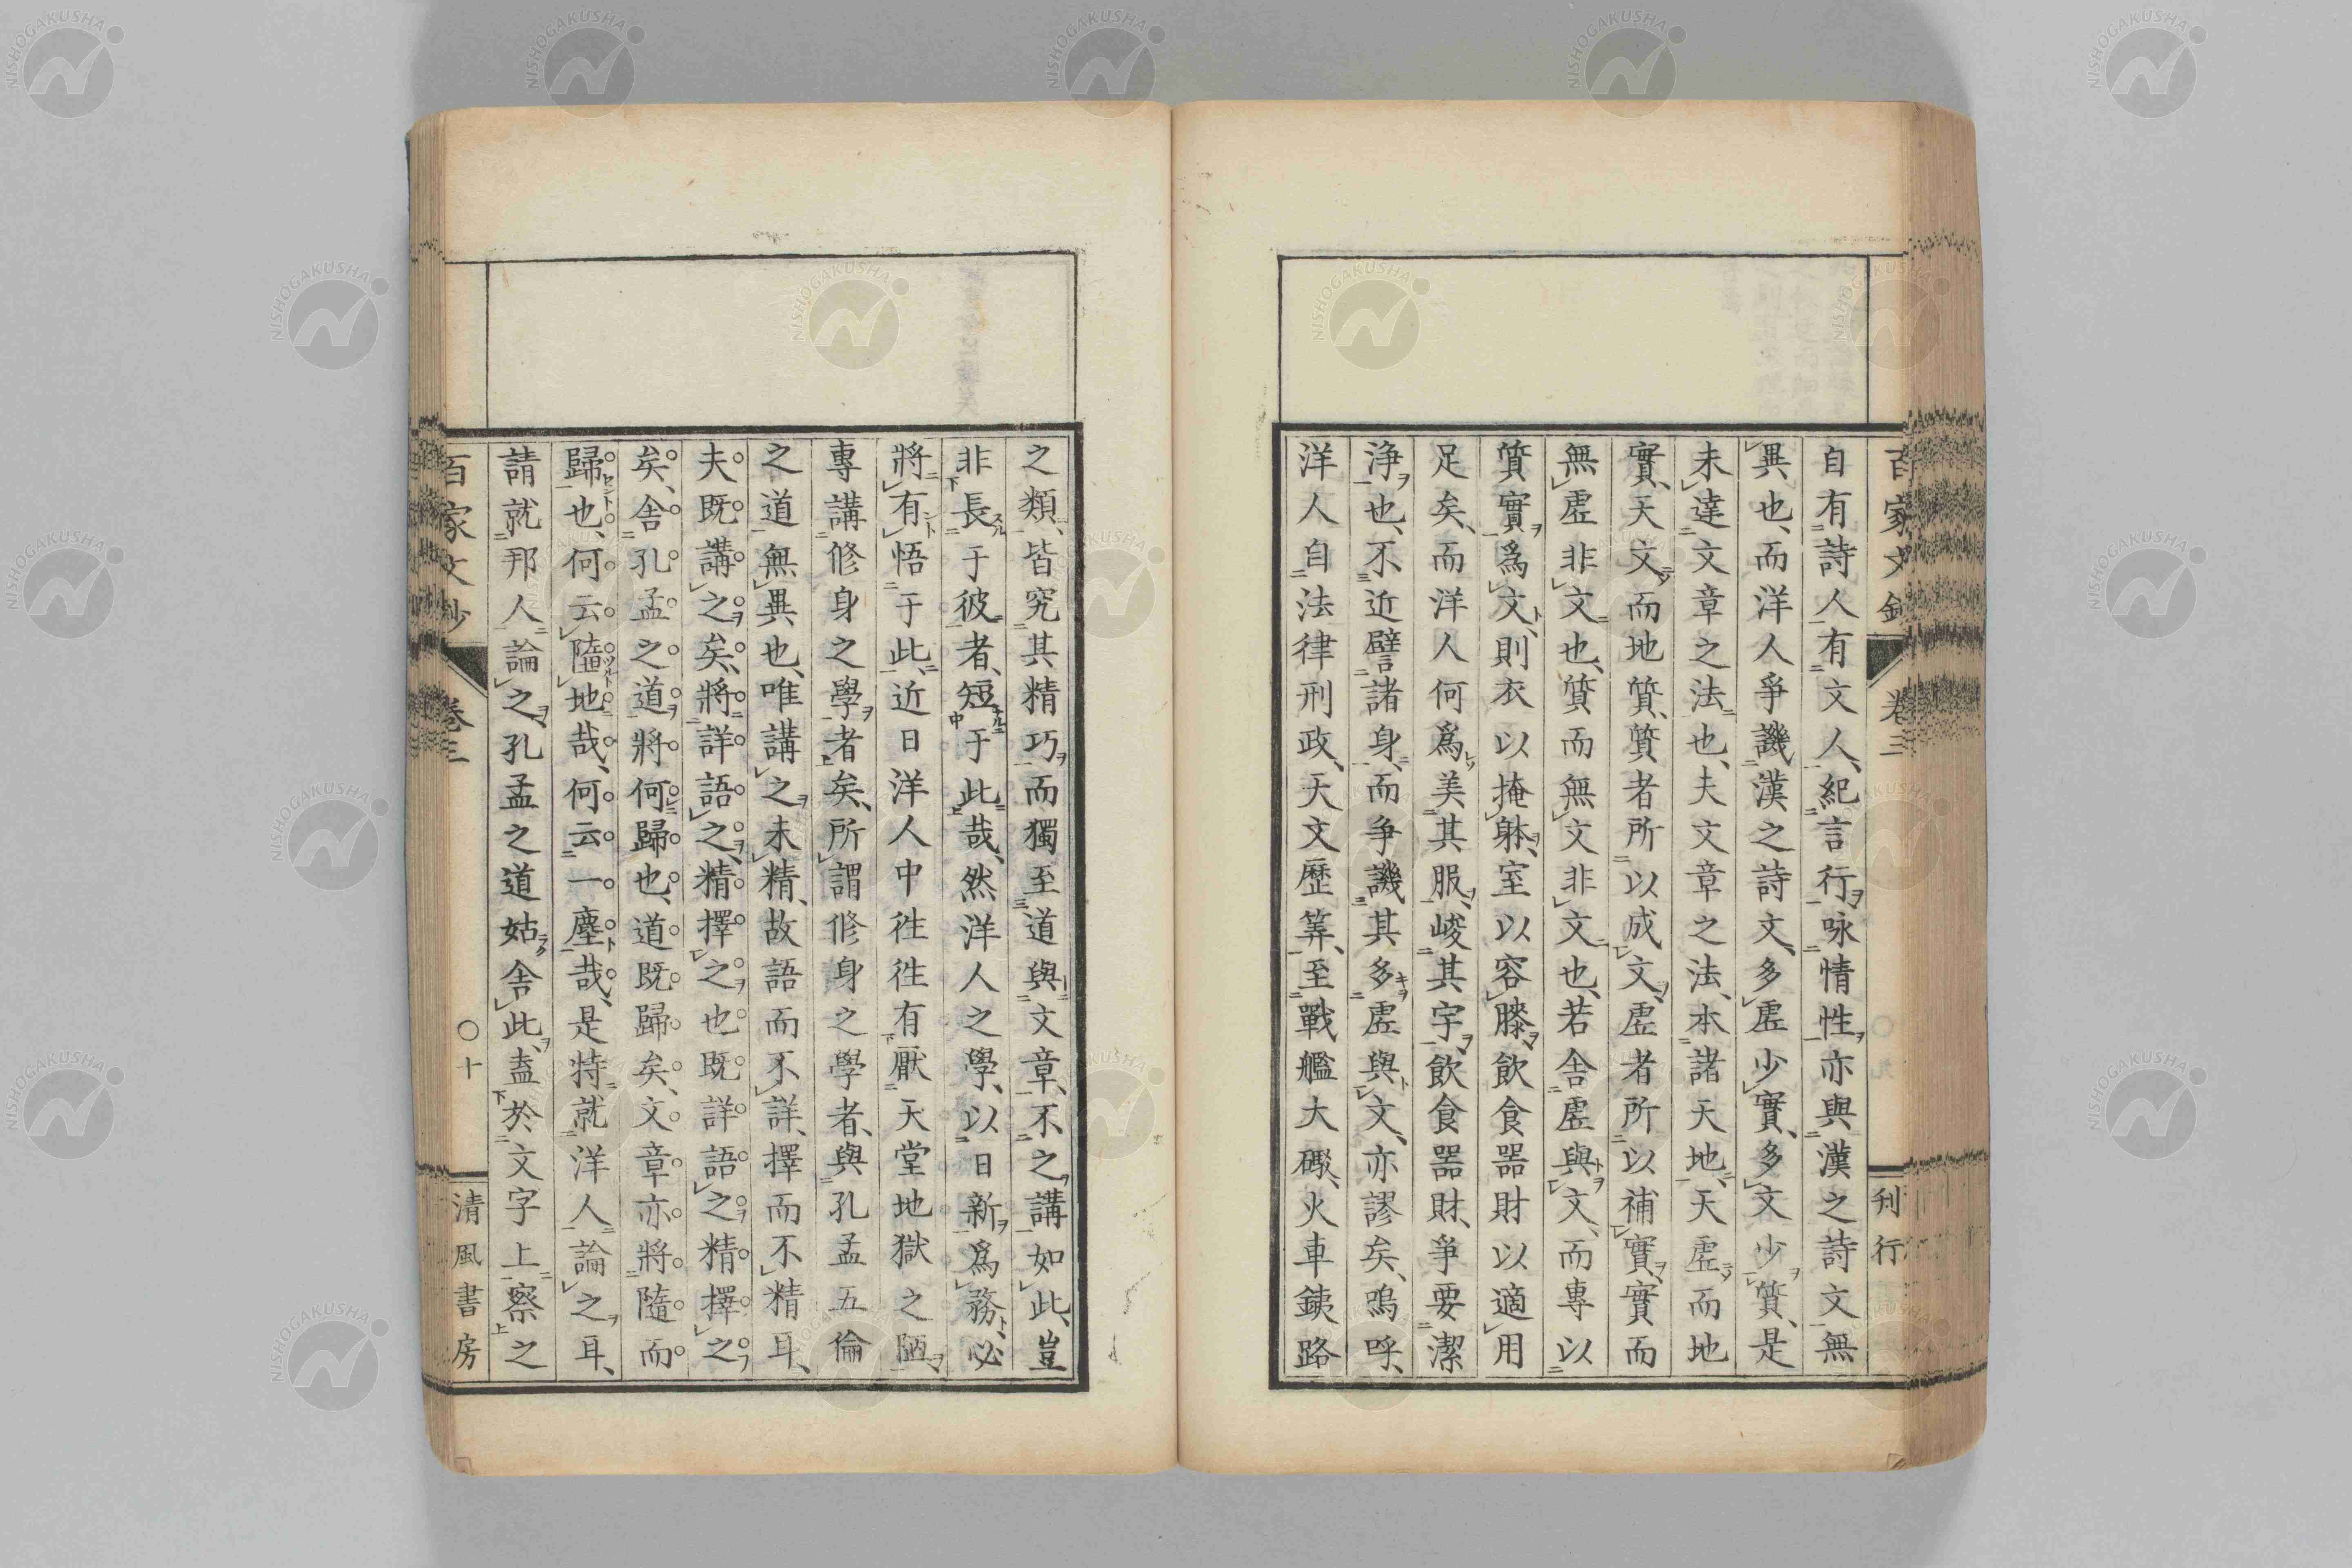 百家文鈔
卷三
刊行
自有詩人有文人、紀言行咏情性亦與漢之詩文無
異也、而洋人爭譏漢之詩文、多虛少實、多文少質、是
未達文章之法也、夫文章之法、本諸天地、天虛而地
實、天文而地質、質者所以成文、虛者所以補實、實而
無虛非文也、質而無文非文也、若舍虛與文、而專以
質實爲文、則衣以掩躰、室以容膝、飲食器財以適用
足矣、而洋人何爲美其服、峻其宇、飲食器財、爭要潔
浄也、不近譬諸身、而爭譏其多虛與文、亦謬矣、嗚呼、
洋人自法律刑政、天文歷筭、至戰艦大礮、火車鉄路
之類、皆究其精巧而獨至道與文章、不之講如此、豈
非長于彼者、短于此哉、然洋人之學、以日新爲務、必
將有悟于此、近日洋人中徃徃有厭天堂地獄之陋、
專講修身之學者矣、所謂修身之學者、與孔孟五倫
之道無異也、唯講之未精、故語而不詳、擇而不精耳、
夫既講之矣、將詳語之、精擇之也既詳語之精擇之
矣、舍孔孟之道將何歸也、道既歸矣、文章亦將隨而
歸也、何云隨地哉、何云一塵哉、是特就洋人論之耳、
請就邦人論之、孔孟之道姑舍此、盍於文字上察之
百家文鈔
卷三
○十
清風書房
NISHOGAKUSHA